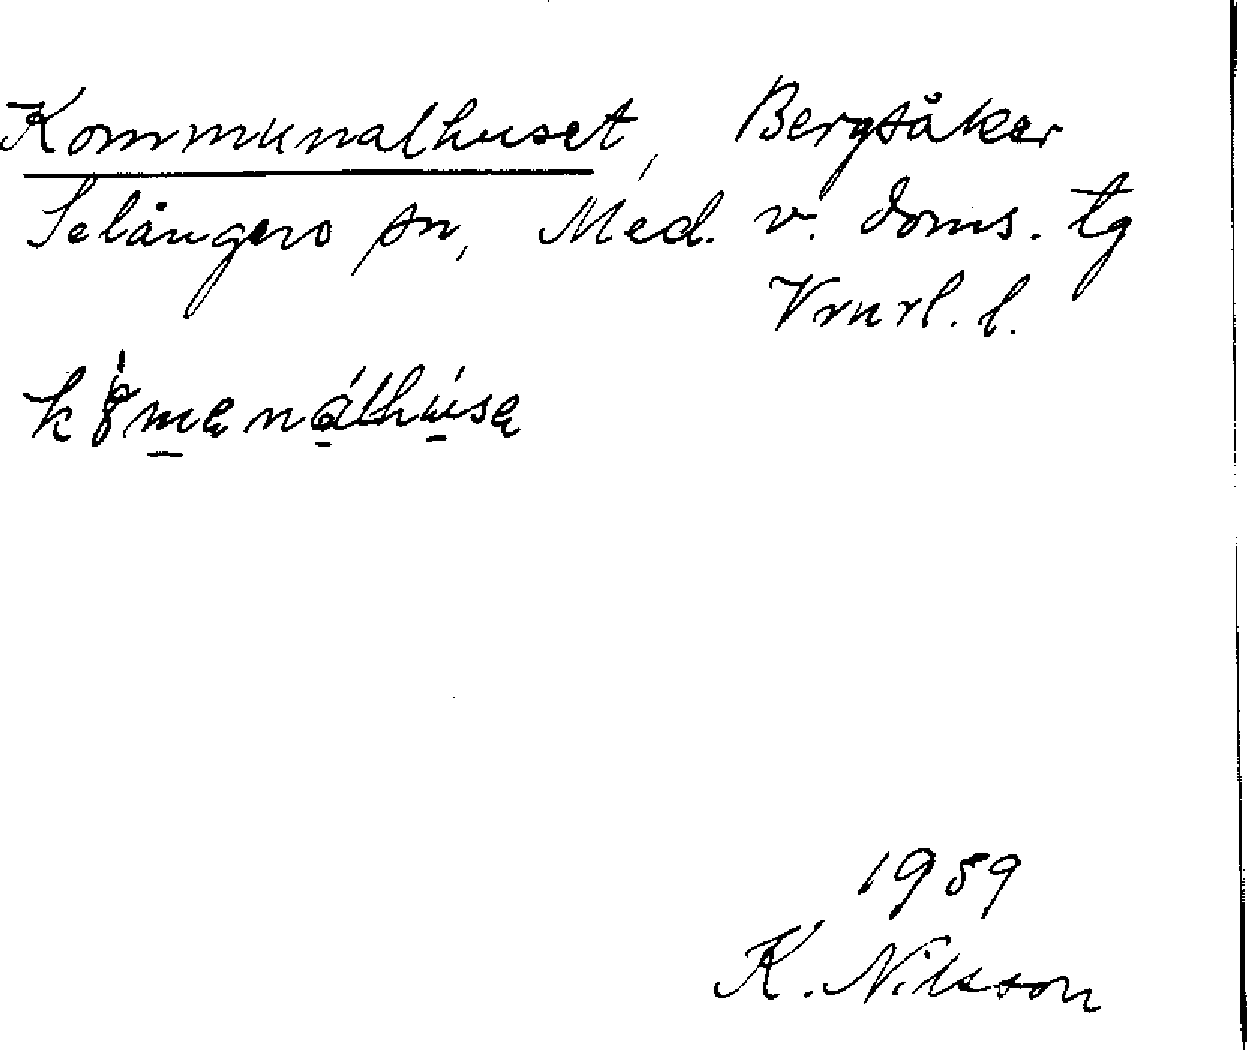 Kommunalhuset, Bergsåker
Selångers sn, Med. v. doms. tg
Vrnrl. l.
1959
K. Nilsson